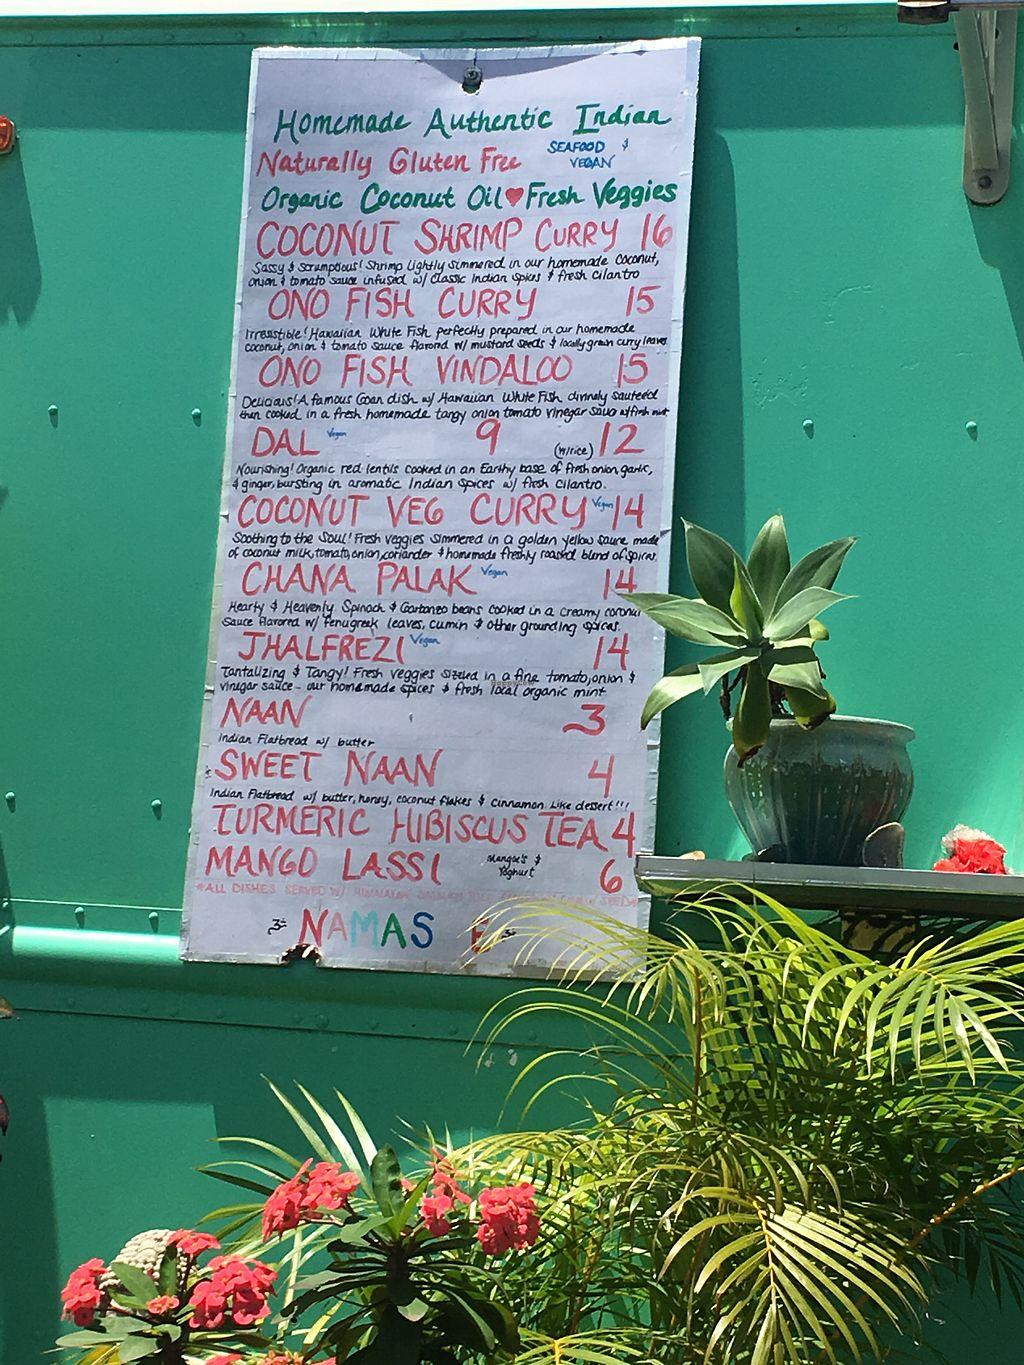 Homemade Authentic Indian
Naturally Gluten Free SEAFOOD & VEGAN
Organic Coconut Oil ♥ Fresh Veggies
COCONUT SHRIMP CURRY 16
Sassy & Scrumptious! Shrimp lightly simmered in our homemade coconut,
onion & tomato sauce infused w/ classic Indian spices & fresh cilantro
ONO FISH CURRY 15
Irresistible! Hawaiian White Fish perfectly prepared in our homemade
coconut, onion & tomato sauce flavored w/ mustard seeds & locally grown curry leaves
ONO FISH VINDALOO 15
Delicious! A famous Goan dish w/ Hawaiian White Fish divinely sauteed
then cooked in a fresh homemade tangy onion tomato vinegar sauce w/fresh mint
DAL Vegan 9 (w/rice) 12
Nourishing! Organic red lentils cooked in an Earthy base of fresh onion, garlic,
& ginger, bursting in aromatic Indian spices w/ fresh cilantro.
COCONUT VEG CURRY Vegan 14
Soothing to the Soul! Fresh veggies simmered in a golden yellow sauce made
of coconut milk, tomato, onion, coriander & homemade freshly roasted blend of spices.
CHANA PALAK Vegan 14
Hearty & Heavenly. Spinach & Garbanzo beans cooked in a creamy coconut
sauce flavored w/ fenugreek leaves, cumin & other grounding spices.
JHALFREZI Vegan 14
Tantalizing & Tangy! Fresh veggies sizzled in a fine tomato, onion &
vinegar sauce - our homemade spices & fresh local organic mint
NAAN 3
Indian Flatbread w/ butter
SWEET NAAN 4
Indian Flatbread w/ butter, honey, coconut flakes & cinnamon. Like dessert!!!
TURMERIC HIBISCUS TEA 4
MANGO LASSI Mangoe's & Yoghurt 6
*ALL DISHES SERVED W/
NAMAS E